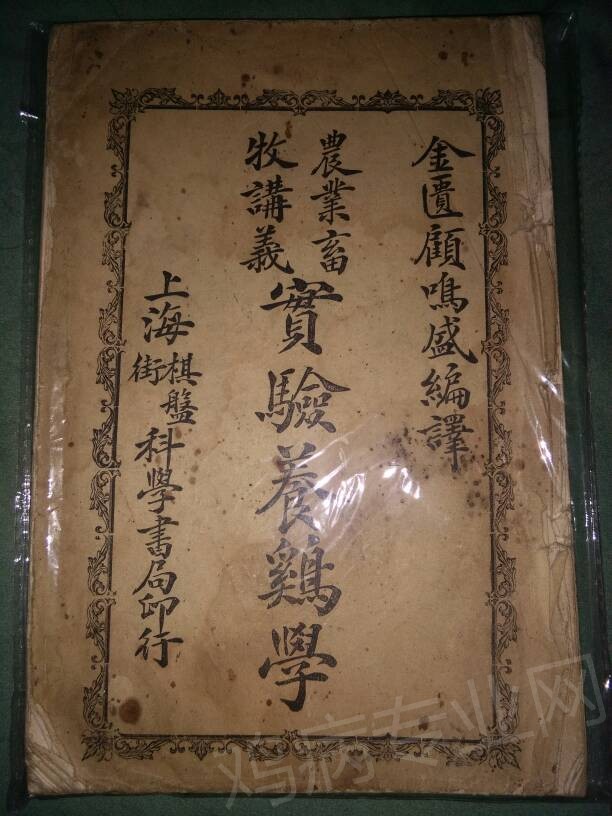 金匱顧鳴盛編譯
農業畜
牧講義
實驗養鷄學
上海棋盤
街
科學書局印行
鸡病专业网